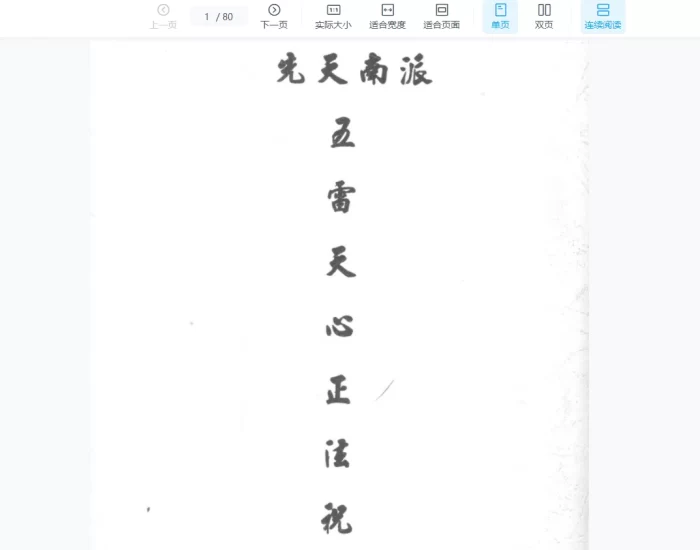 上一页
1 / 80
下一页
实际大小
适合宽度
适合页面
单页
双页
连续阅读
先天南派
五
雷
天
心
正
法
祝